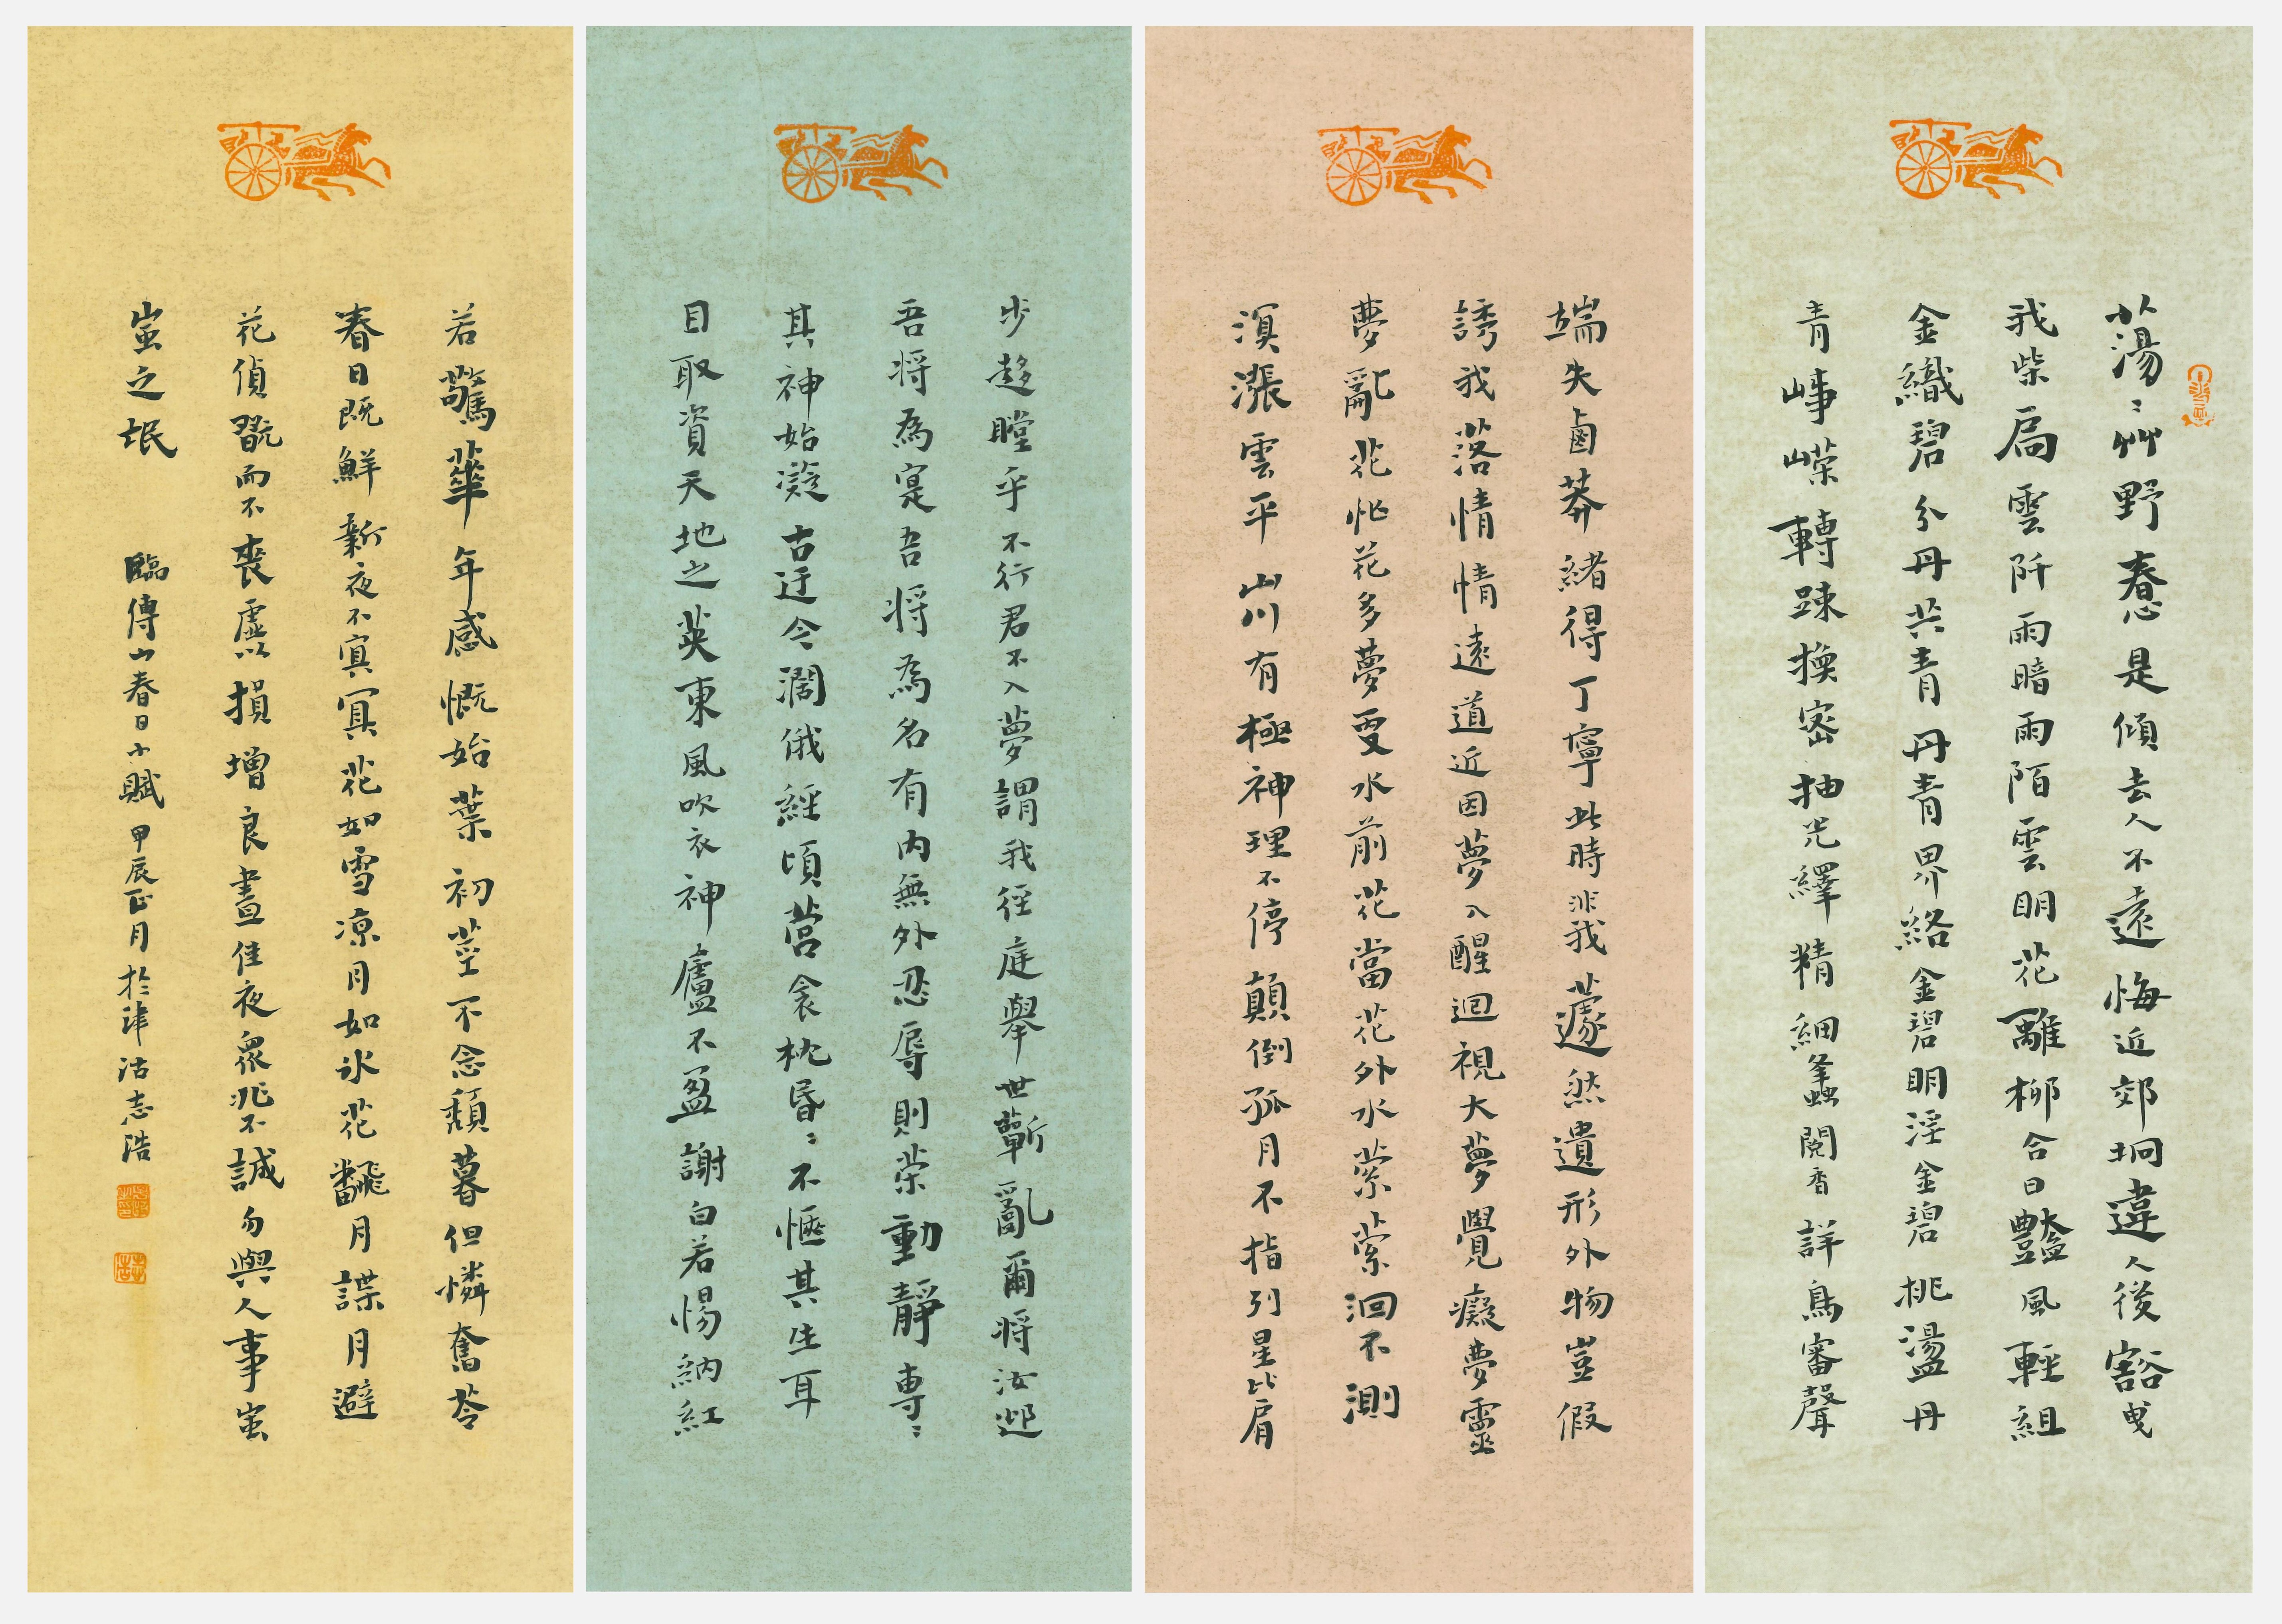 蕩〻艸野春心是傾去人不遠悔近郊坰違人後豁曳
我柴扃雲阡雨暗雨陌雲明花離柳合日豔風輕組
金織碧分丹共青丹青界絡金碧明淫金碧桃盪丹
青崢嶸轉踈換密抽光繹精細蠭閱香詳鳥審聲
端失鹵莽緒得丁寧此時非我蘧然遺形外物豈假
誘我落情情遠道近因夢入醒迴視大夢覺癡夢靈
夢亂花忙花多夢更水前花當花外水縈縈洄不測
溟漲雲平山川有極神理不停顛倒孤月不指列星比肩
步趍瞠乎不行君不入夢謂我徑庭舉世蘄亂爾將汝
吾將為寔吾將為名有内無外忍辱則榮動靜專〻
其神始凝古迂今濶俄經頃營衾枕昏〻不愜其生耳
目取資天地之英東風吹衣神廬不盈謝白若惕納紅
若驚華年感慨始葉初莖不念頹暮但憐奮苓
春日既鮮新夜不寘冥花如雪凉月如氷花翻月諜月避
花偵翫而不喪虛以損增良晝佳夜衆兆不誠勿與人事蚩
蚩之氓
臨傅山春日小賦 甲辰正月於津沽志浩